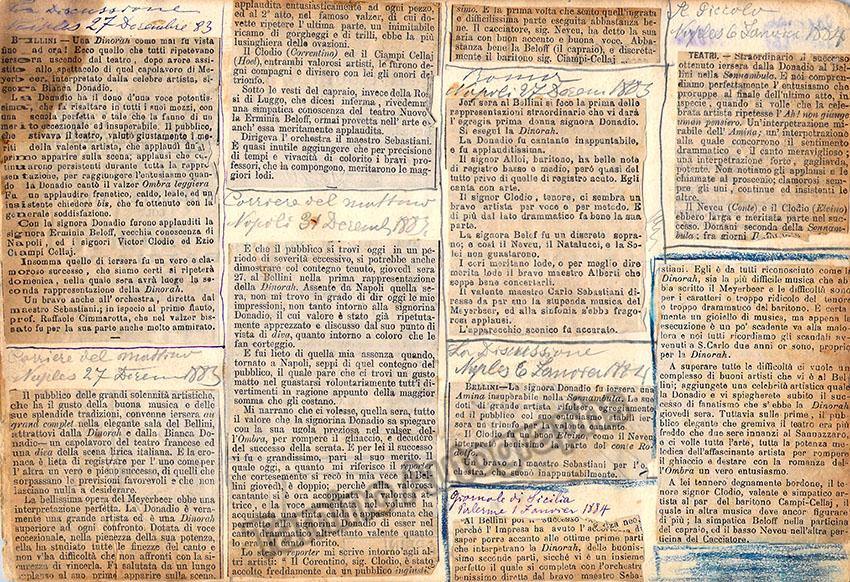 La Discussione
Naples 27 Decembre 83
BELLINI — Una Dinorah come mai fu vista
fino ad ora! Ecco quello che tutti ripetevano
iersera uscendo dal teatro, dopo avere assi-
stito allo spettacolo di quel capolavoro di Meyer-
beer, interpretato dalla celebre artista, signora
Bianca Donadio.
La Donadio ha il dono d'una voce potentis-
sima, che fa risaltare in tutti i suoi mezzi, con una
scuola perfetta e tale che la fanno di un
merito eccezionale ed insuperabile. Il pubblico, che
stivava il teatro, valutò giustamente i me-
riti della valente artista, che applaudì fin dal
primo apparire sulla scena; applausi che con-
tinuarono persistenti durante tutta la rappre-
sentazione, per raggiungere l'entusiasmo quan-
do la Donadio cantò il valzer Ombra leggiera.
Fu un applaudire frenetico, caldo, leale, ed un
insistente chiedere bis, che fu ottenuto con la
generale soddisfazione.
Con la signora Donadio furono applauditi la
signora Erminia Beloff, vecchia conoscenza di
Napoli, ed i signori Victor Clodio ed Ezio
Ciampi Cellaj.
Insomma quello di iersera fu un vero e cla-
moroso successo, che siamo certi si ripeterà
domenica, nella quale sera avrà luogo la se-
conda rappresentazione della Dinorah.
Un bravo anche all'orchestra, diretta dal
maestro Sebastiani; in ispecie al primo flauto,
prof. Raffaele Cimmarotta, che col valzer bis-
sato fu per la sua parte anche molto ammirato.
Corriere del mattino
Naples 27 Decem 1883
Il pubblico delle grandi solennità artistiche,
che ha il gusto della buona musica e delle
sue splendide tradizioni, convenne iersera in
grand complet nella elegante sala del Bellini,
attrattovi dalla Dinorah e dalla Bianca Do-
nadio — un capolavoro del teatro francese ed
una diva della scena lirica italiana. E la cro-
naca è lieta di registrare per l'uno come per
l'altra un vero e pieno successo, di quelli che
sorpassano le previsioni favorevoli e che non
lasciano nulla a desiderare.
La bellissima opera del Meyerbeer ebbe una
interpretazione perfetta. La Donadio è vera-
mente una grande artista ed è una Dinorah
superiore ad ogni confronto. Dotata di voce
eccezionale, nella pienezza della sua potenza,
ella ha studiato tutte le finezze del canto e
non v'ha difficoltà che non affronti con la si-
curezza di vincerla. Fu salutata da un lungo
applauso al suo primo apparire sulla scena.
applaudita entusiasticamente ad ogni pezzo,
ed al 2° atto, nel famoso valzer, di cui do-
vette ripetere l'ultima parte, una inimitabile
ricamo di gorgheggi e di trilli, ebbe la più
lusinghiera delle ovazioni.
Il Clodio (Correntino) ed il Ciampi Cellaj
(Hoel), entrambi valorosi artisti, le furono de-
gni compagni e divisero con lei gli onori del
trionfo.
Sotto le vesti del capraio, invece della Rosi-
ni di Luggo, che dicesi inferma, rivedemmo
una simpatica conoscenza del teatro Nuovo,
la Erminia Beloff, ormai provetta nell'arte e
anch'essa meritamente applaudita.
Dirigeva l'orchestra il maestro Sebastiani.
È quasi inutile aggiungere che per precisione
di tempi e vivacità di colorito i bravi pro-
fessori, che la compongono, meritarono le mag-
giori lodi.
Corriere del mattino
Napoli 31 Decemb 1883.
E che il pubblico si trovi oggi in un pe-
riodo di severità eccessivo, si potrebbe anche
dimostrare col contegno tenuto, giovedì sera
27, al Bellini nella prima rappresentazione
della Dinorah. Assente da Napoli quella se-
ra, non mi trovo in grado di dir oggi le mie
impressioni, non tanto intorno alla signorina
Donadio, il cui valore è stato già ripetuta-
mente apprezzato e discusso dal suo punto di
vista di diva, quanto intorno a coloro che le
fan corteggio.
E fui lieto di quella mia assenza quando,
tornato a Napoli, seppi di quel contegno del
pubblico, il quale pare che ci trovi un gusto
matto nel guastarsi volontariamente tutt'i di-
vertimenti in ragione appunto della maggior
somma che gli costano.
Mi narrano che si volesse, quella sera, tutto
il valore che la signorina Donadio sa spiegare
con la sua ugola preziosa nel valzer del-
l'Ombra, per rompere il ghiaccio, e decidere
del successo della serata. E per lei il successo
vi fu e grandissimo, pari al suo merito. Il
quale oggi, a quanto mi riferisce il reporter
che cortesemente si recò in mia vece al Bel-
lini giovedì, è doppio, perchè la
cantante si è ora anche fatta
trice, e
acquistata
di esser nel
cantante valente quanto
Lo stesso reporter mi scrive intorno agl'al-
tri artisti: « Il Corentino, sig. Clodio, è stato
accolto freddamente da un pubblico ingiusti-
simo. È la prima volta che sento quell'ingrata
e difficilissima parte eseguita abbastanza be-
ne. Il cacciatore, sig. Neveu, ha detto la sua
aria con buon accento e buona voce. Abba-
stanza bene la Beloff (il capraio), e discreta-
mente il baritono sig. Ciampi-Cellaj.
Roma
Napoli 27 Decem 1883
Ieri sera al Bellini si fece la prima delle
rappresentazioni straordinario che vi darà
l'egregia prima donna signora Donadio.
Si eseguì la Dinorah.
La Donadio fu cantante inappuntabile,
e fu applauditissima.
Il signor Alloi, baritono, ha belle note
di registro basso e medio, però quasi del
tutto privo di quelle di registro acuto. Egli
canta con arte.
Il signor Clodio, tenore, ci sembra un
bravo artista per voce e per metodo. E
il più dal lato drammatico fa bono la sua
parte.
La signora Belof fu un discreto sopra-
no; e così il Neveu, il Natalucci, e la So-
lei non guastarono.
I cori meritano lode, o per meglio dire
merita lode il bravo maestro Alberti che
seppe bene concertarli.
Il valente maestro Carlo Sebastiani di-
resse da par suo la stupenda musica del
Meyerbeer, ed alla sinfonia s'ebbe frago-
rosi applausi.
L'apparecchio scenico fu accurato.
La Discussione
Naples 6 Janvier 1884
BELLINI — La signora Donadio fu iersera una
Amina insuperabile nella Sonnambula. Le sue
doti di grande artista
ed il pubblico col
sera un trionfo
Il Clodio Elvino, come il Neveu
parte del conte Ro-
dolfo.
Il bravo maestro Sebastiani per l'o-
inappuntabilmente.
Giornale di Sicilia
Palermo 1 Janvier 1884
Al Bellini poi successo
perchè l'Impresa ha avuto l'accortezza di
saper porre accanto alle ottime prime parti
che interpretano la Dinorah, delle buonis-
sime seconde parti, sicchè vi è un insieme
perfetto il quale si completa con l'orchestra
benissimo diretta dal bravo maestro Seba-
Il Piccolo
Naples 6 Janvier 1884
TEATRI. — Straordinario il successo
ottenuto iersera dalla Donadio al Bel-
lini nella Sonnambula. E noi compren-
diamo perfettamente l'entusiasmo che
proruppe al finale dell'ultimo atto, in
ispecie, quando a voli che la cele-
brata artista ripetesse l'Ah! non giunge
uman pensiero. Un'interpretazione mi-
rabile dell'Amina; un'interpretazione
alla quale concorrono il sentimento
drammatico e il canto meraviglioso.
Un'interpretazione forte, gagliarda,
potente. Non notiamo gli applausi e le
chiamate al proscenio; clamorosi sem-
pre gli uni, continue ed insistenti le
altre.
Il Neveu (Conte) e il Clodio (Elvino)
ebbero larga e meritata parte nel suc-
cesso. Domani seconda della Sonnam-
bula; fra giorni Il
stiani. Egli è da tutti riconosciuto come la
Dinorah, sia la più difficile musica che ab-
bia scritto il Meyerbeer e le difficoltà sono
per i caratteri o troppo ridicolo del tenore
o troppo drammatico del baritono. È certa-
mente un gioiello di musica, ma appena la
esecuzione è un po' scadente va alla malo-
ra e noi tutti ci ricordiamo gli scandali av-
venuti a S. Carlo due anni or sono, proprio
per la Dinorah.
A superare tutte le difficoltà ci vuole un
complesso di buoni artisti che vi è al Bel-
lini; aggiungete una celebrità artistica quale
la Donadio e vi spiegherete subito il suc-
cesso di fanatismo che s'ebbe la Dinorah
giovedì sera. Tuttavia sulle prime, il pub-
blico elegante che gremiva il teatro era più
freddo che due sere innanzi al Sannazzaro,
vi volle tutta l'arte, tutta la potenza melo-
dica dell'affascinante artista per rompere
il ghiaccio e destare con la romanza del-
l'Ombra un vero entusiasmo.
A lei tennero degnamente bordone, il te-
nore signor Clodio, valente e simpatico ar-
tista al par del baritono Campi-Cellaj, il
quale in altra musica deve ancor figurare
di più; la simpatica Beloff nella particina
del capraio, e il basso Neveu nell'altra par-
ticina del Cacciatore.
Tamino Autographs